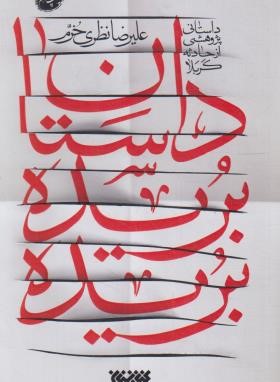 داستانی
پژوهشی
از حادثه
کربلا
علیرضا نظری خرّم
داستان
بریده
بریده
کتابستان